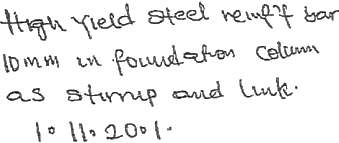 High yield steel reinf't bar
10mm in foundation column
as stirrup and link.
1.11.2001.